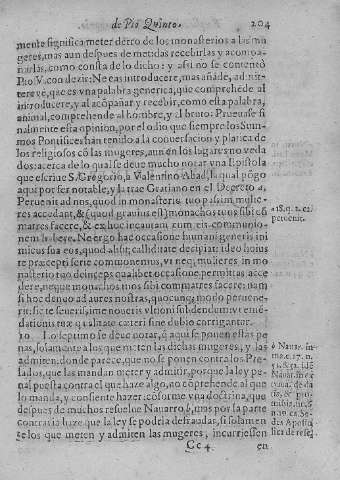 de Pio Quinto. 204
mente significa meter dētro de los monasterios a las mu
geres, mas aun despues de metidas recebirlas y acompa
ñarlas, como consta de lo dicho: y assi no se contentò
Pio V. con dezir: Ne eas introducere, mas añade, ad mit
tere vè, que es vna palabra generica, que comprehēde al
introducere, y al acōpañar y recebir, como esta palabra,
animal, comprehende al hombre, y al bruto. Prueuase fi
nalmente esta opinion, por el odio que siempre los Sum-
mos Pontifices han tenido a la conuersacion y platica de
los religiosos cō las mugeres, aun en los lugares no veda
dos: acerca de lo qual se deue mucho notar vna Epistola
que escriue S. Gregorio, à Valentino Abad, la qual pōgo
aqui por ser notable, y la trae Graciano en el Decreto a,
Peruenit ad nos, quod in monasterio tuo passim mulie-
res ascendant, & (quod grauius est) monachos tuos sibi cō
matres facere, & ex hoc incautam cum eis communio-
nem habere. Ne ergo hac occasione humani generis ini
micus sua eos, quod absit, calliditate decipiat: ideo huius
te præcepti serie commonemus, vt neq; mulieres in mo
nasterio tuo deinceps qualibet occasione permittas acce
dere, neque monachos tuos sibi commatres facere: nam
si hoc denuo ad aures nostras, quocunq; modo peruene-
rit: sic te seuerissimæ noueris vltioni subdendum vt emē-
dationis tuæ qualitate cæteri sine dubio corrigantur.
10 Lo septimo se deue notar, q̄ aqui se ponen estas pe
nas, solamente a los que meten las dichas mugeres, y las
admiten: donde parece, que no se ponen contra los Pre-
lados, que las mandan meter y admitir, porque la ley pe
nal puesta contra el que haze algo, no cōprehende al que
lo manda, y consiente hazer: cōforme vna doctrina, que
despues de muchos resuelue Nauarro b, mas por la parte
contraria luze que la ley se podria defraudar, si solamen
se los que meten y admiten las mugeres, incurriessen
Cc 4 en
a 18. q. 2. c.
peruenit.
b Nauar. in